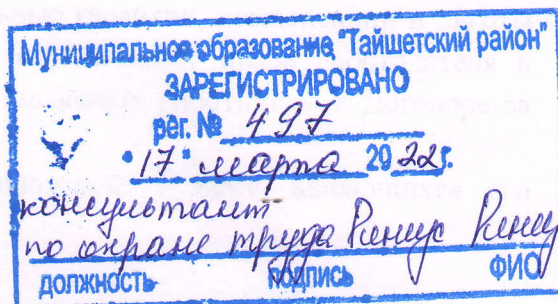 Муниципальное образование "Тайшетский район"
ЗАРЕГИСТРИРОВАНО
рег. № 497
"17" марта 2022г.
консультант
по охране труда
должность подпись ФИО